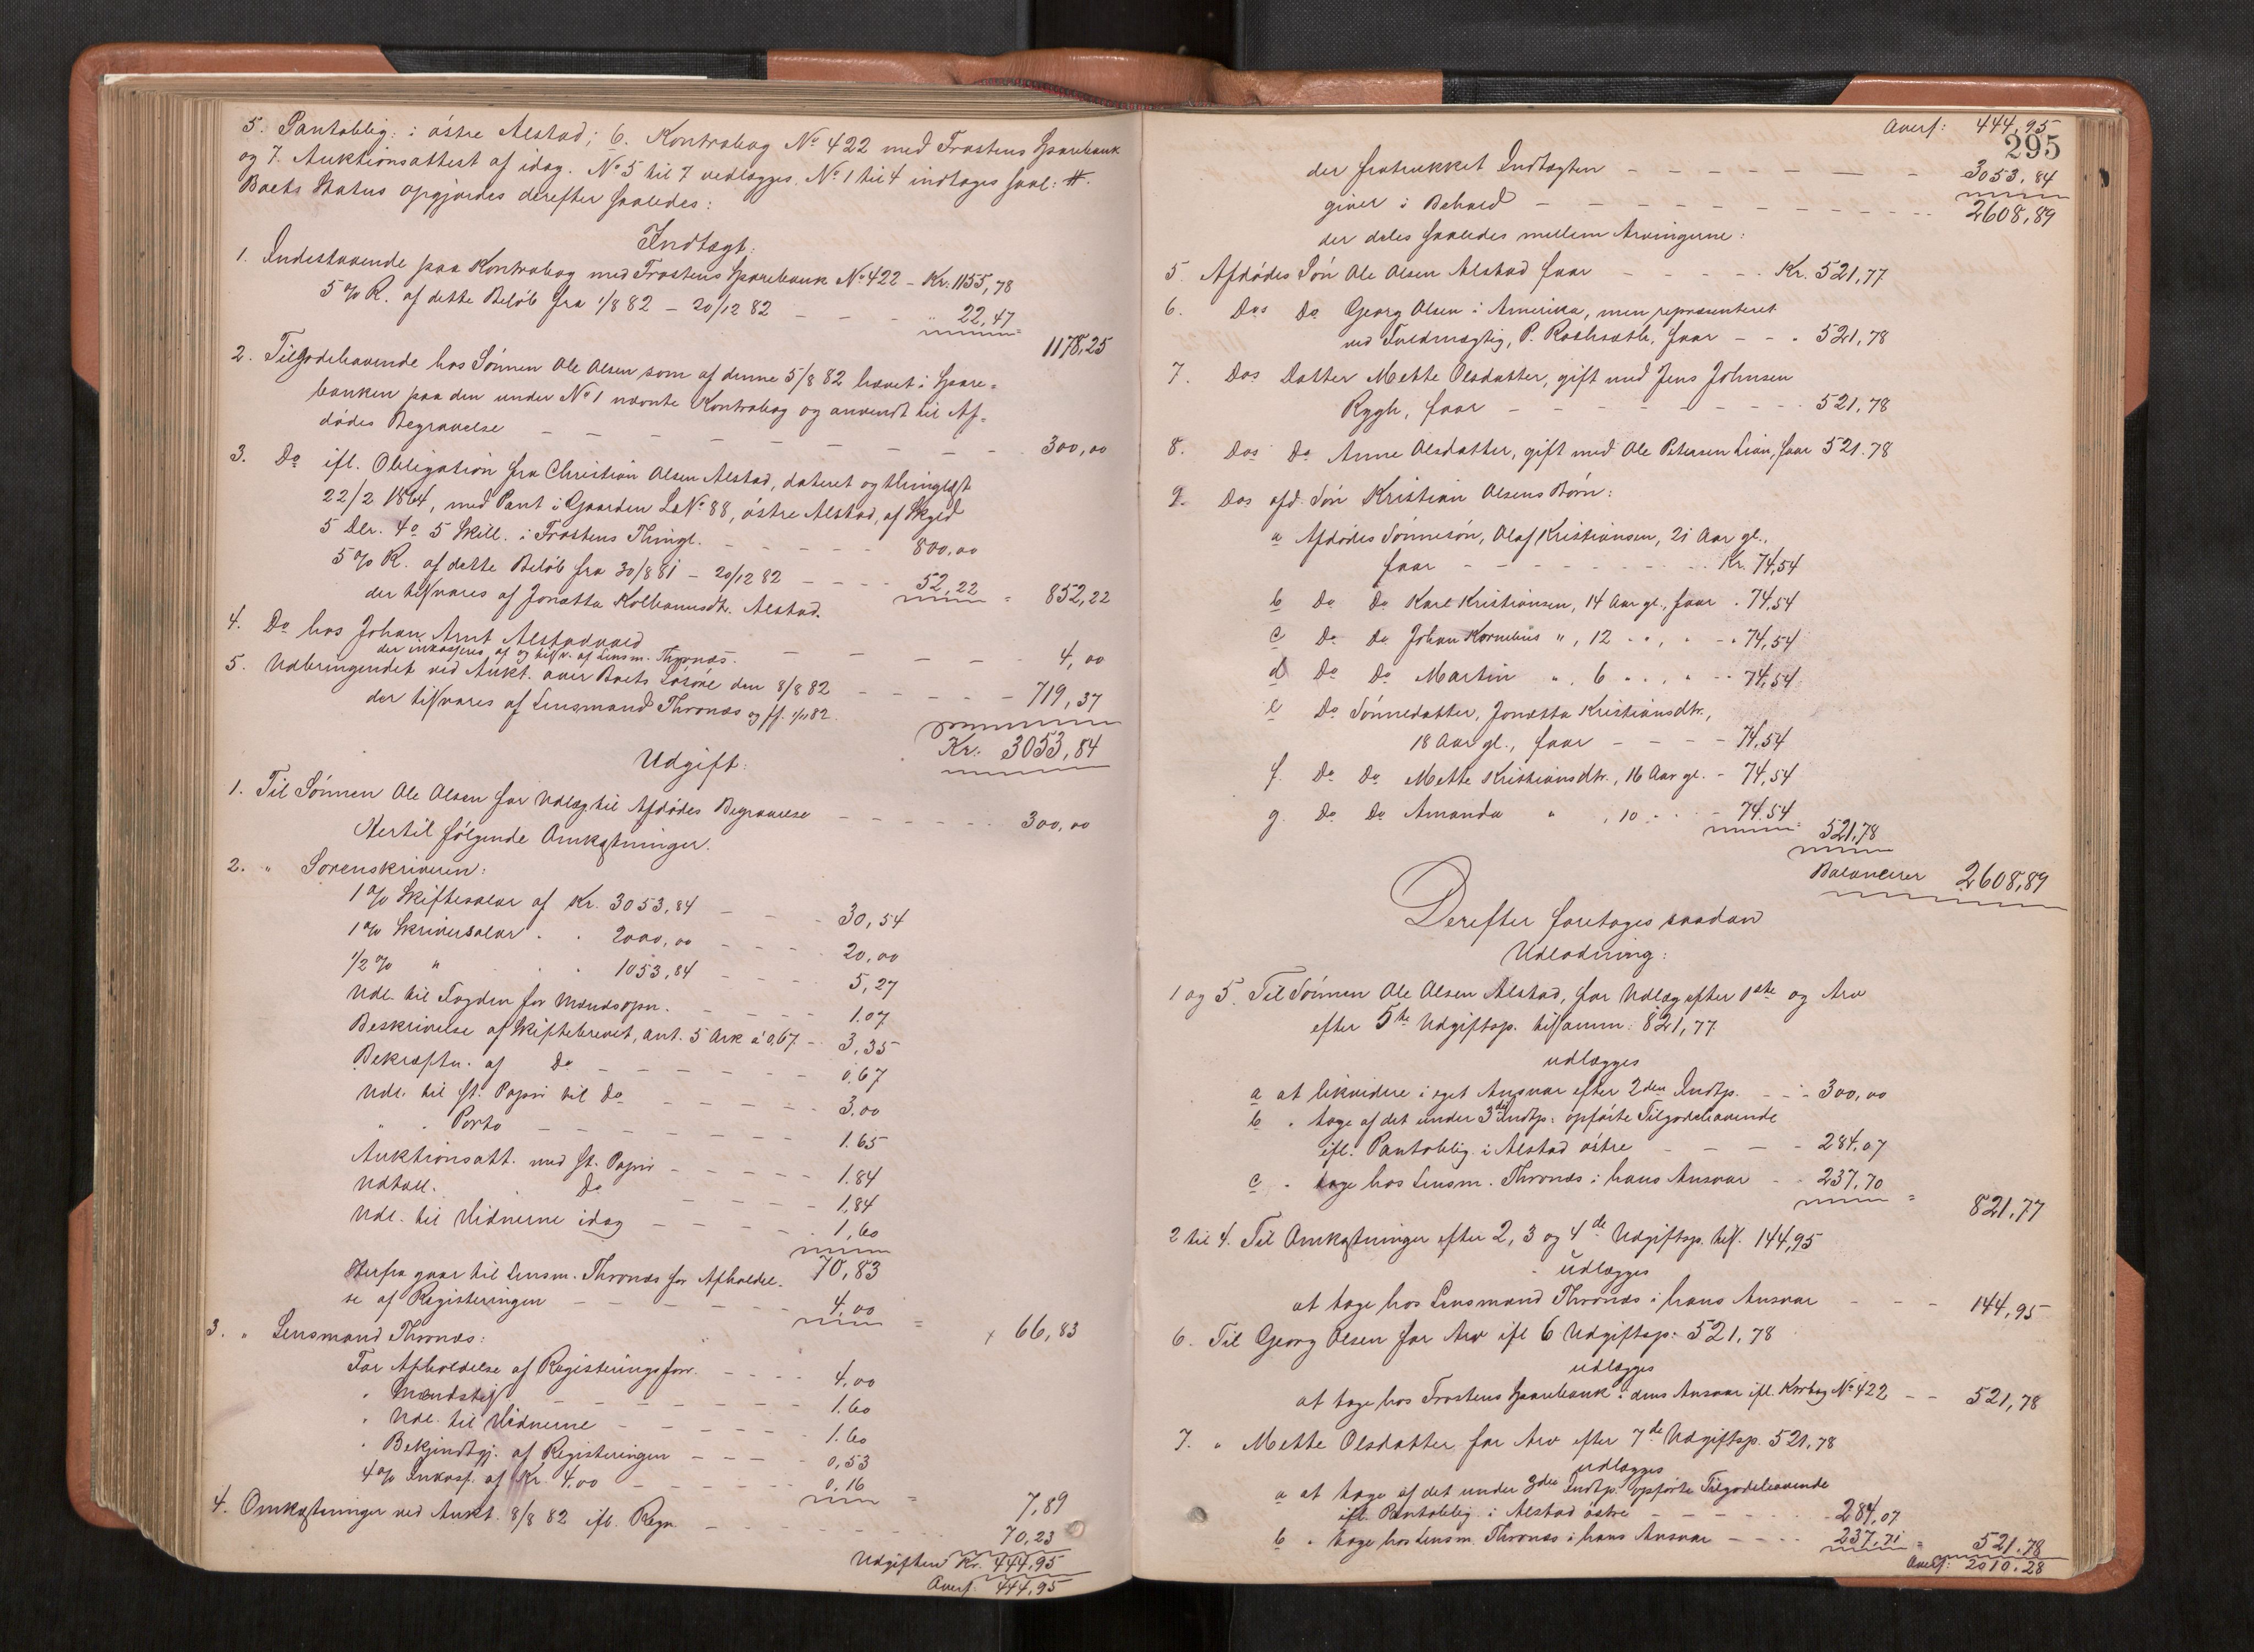 5. Pantoblig: i östre Alstad; 6. Kontrabog No 422 med Frostens Sparebank
og 7. Auktionsattest af idag. No 5 til 7 vedlægges. No 1 til 4 indtages saal: #.
Boets Status opgjordes derefter saaledes:
Indtægt:
1. Indestaaende paa Kontrabog med Frostens Sparebank No 422 - Kr. 1155,78
5 % R. af dette Belöb fra 1/8 82 - 20/12 82 - - - " 22,47
1178,25
2. Tilgodehavende hos Sönnen Ole Olsen som af denne 5/8 82 hævet i Spare=
banken paa den under No 1 nævnte Kontrabog og anvendt til Af=
dödes Begravelse - - - - - - - - 300,00
3. Do ifl. Obligation fra Christian Olsen Alstad, dateret og thinglæst
22/2 1864, med Pant i Gaarden L No 88, östre Alstad, af Skyld
5 Dlr. 4 o 5 Skill. i Frostens Thingl. - - - - - 800,00
5 % R. af dette Belöb fra 30/8 81 - 20/12 82 - - - - 52,22 = 852,22
der tilsvares af Jonetta Kolbanusdtr. Alstad.
4. Do hos Johan Arnt Alstadvald - - - - 4,00
der inkasseres af og tilsv. af Lensm. Thronæs.
5. Udbringendet ved Aukt. over Boets Lösöre den 8/8 82 - - - - - 719,37
der tilsvares af Lensmand Thronæs og ff. 1/11 82.
Kr. 3053,84
Udgift:
1. Til Sönnen Ole Olsen for Udlæg til Afdödes Begravelse - - - - - - 300,00
Hertil fölgende Omkostninger.
2. " Sorenskriveren:
1 % Skiftesalær af Kr. 3053,84 - - - 30,54
1 % Skriversalær " " 2000,00 - - - 20,00
1/2 % " " " 1053,84 - - - 5,27
Udl. til Fogden for Mændsopn. - - - - 1.07
Beskrivelse af Skiftebrevet, ant. 5 Ark à 0,67. - 3,35
Bekræftn. af Do - - - - - - 0,67
Udl. til st. Papir til Do - - - - - 3,00
" " Porto - - - - - - - 1.65
Auktionsatt. med st. Papir - - - - - 1.84
Udtall. " Do - - - - 1,84
Udl. til Vidnerne idag - - - - - 1,60
70,83
Herfra gaar til Lensm. Thronæs for Afholdel-
se af Registeringen - - - - - - 4,00 = 66,83
3. " Lensmand Thronæs:
For Afholdelse af Registeringsforr. - - - - 4,00
" Mændstilf. - - - - - - - 1.60
" Udl. til Vidnerne - - - - - 1.60
" Bekjendtgj. af Registeringen - - - - 0,53
4 % Inkass. af Kr. 4,00 - - - - - - 0,16 = 7,89
4. Omkostninger ved Aukt. 8/8 82 ifl. Regn - - - - - - 70,23
Udgiften Kr. 444,95
Overf: 444,95
Overf: 444,95
295
der fratrukket Indtægten - - - - - - - 3053,84
giver i Behold - - - - - - - - - - 2608,89
der deles saaledes mellem Arvingerne:
5. Afdödes Sön Ole Olsen Alstad faar - - - - - Kr. 521,77
6. Dos Do Georg Olsen i Amerika, men repræsenteret
ved Fuldmægtig, P. Rostveth, faar - - " 521,78
7. Dos Datter Mette Olsdatter, gift med Jens Johnsen
Rygh, faar - - - - - - - - 521,78
8. Dos Do Anne Olsdatter, gift med Ole Petersen Lian, faar 521.78
9. Dos afd. Sön Kristian Olsens Börn:
a Afdödes Sönnesön, Olaf Kristiansen, 21 Aar gl.,
faar - - - - - - - - - Kr. 74,54
b Do Do Karl Kristiansen, 14 Aar gl., faar " 74,54
c Do Do Johan Kornelius ", 12 " " , " - " 74,54
d Do Do Martin " , 6 " " , " - - 74,54
e Do Sönnedatter, Jonetta Kristiansdtr.,
18 Aar gl., faar - - - - 74,54
f. Do Do Mette Kristiansdtr., 16 Aar gl. - 74,54
g. Do Do Amanda " , 10 " " - 74.54 = 521,78
Balancerer 2608,89
Derefter foretoges saadan
Udlodning:
1 og 5. Til Sönnen Ole Olsen Alstad, for Udlæg efter 1ste og Arv
efter 5te Udgiftsp. tilsamm: 821,77
udlægges
a at likvidere i eget Ansvar efter 2den Indtp. - - - 300,00
b " tage af det under 3die Indtp. opförte Tilgodehavende
ifl. Pantoblig. i Alstad östre - - - - 284,07
c " tage hos Lensm. Thronæs i hans Ansvar - - 237,70 = 821,77
2 til 4. Til Omkostninger efter 2, 3 og 4de Udgiftsp. tils. 144,95
udlægges
at tage hos Lensmand Thronæs i hans Ansvar - - - 144,95
6. Til Georg Olsen for Arv ifl 6 Udgiftsp. 521,78
udlægges
at tage hos Frostens Sparebank i dens Ansvar ifl. Kontrbog No 422 - - 521,78
7. " Mette Olsdatter for Arv efter 7de Udgiftsp. 521,78
udlægges
a at tage af det under 3die Indtp. opförte Tilgodehavende
ifl. Pantoblig. i Alstad östre - - - - - 284,07
b " tage hos Lensm. Thronæs i hans Ansvar - - - - 237,71 = 521.78
Overf: 2010.28